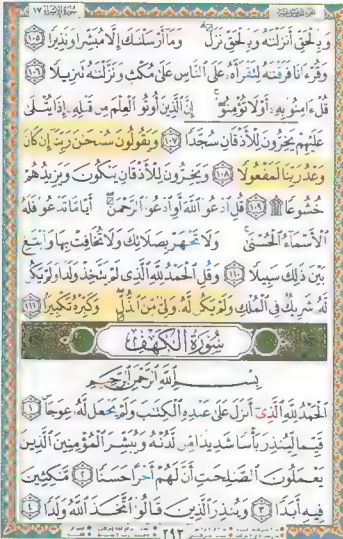 سورة الإسراء ١٧
وَبِٱلْحَقِّ أَنزَلْنَٰهُ وَبِٱلْحَقِّ نَزَلَ ۗ وَمَآ أَرْسَلْنَٰكَ إِلَّا مُبَشِّرًا وَنَذِيرًا ١٠٥
وَقُرْءَانًا فَرَقْنَٰهُ لِتَقْرَأَهُۥ عَلَى ٱلنَّاسِ عَلَىٰ مُكْثٍ وَنَزَّلْنَٰهُ تَنزِيلًا ١٠٦
قُلْ ءَامِنُوا۟ بِهِۦٓ أَوْ لَا تُؤْمِنُوٓا۟ ۚ إِنَّ ٱلَّذِينَ أُوتُوا۟ ٱلْعِلْمَ مِن قَبْلِهِۦٓ إِذَا يُتْلَىٰ
عَلَيْهِمْ يَخِرُّونَ لِلْأَذْقَانِ سُجَّدًا ١٠٧ وَيَقُولُونَ سُبْحَٰنَ رَبِّنَآ إِن كَانَ
وَعْدُ رَبِّنَا لَمَفْعُولًا ١٠٨ وَيَخِرُّونَ لِلْأَذْقَانِ يَبْكُونَ وَيَزِيدُهُمْ
خُشُوعًا ۩ ١٠٩ قُلِ ٱدْعُوا۟ ٱللَّهَ أَوِ ٱدْعُوا۟ ٱلرَّحْمَٰنَ ۖ أَيًّا مَّا تَدْعُوا۟ فَلَهُ
ٱلْأَسْمَآءُ ٱلْحُسْنَىٰ ۚ وَلَا تَجْهَرْ بِصَلَاتِكَ وَلَا تُخَافِتْ بِهَا وَٱبْتَغِ
بَيْنَ ذَٰلِكَ سَبِيلًا ١١٠ وَقُلِ ٱلْحَمْدُ لِلَّهِ ٱلَّذِى لَمْ يَتَّخِذْ وَلَدًا وَلَمْ يَكُن
لَّهُۥ شَرِيكٌ فِى ٱلْمُلْكِ وَلَمْ يَكُن لَّهُۥ وَلِىٌّ مِّنَ ٱلذُّلِّ ۖ وَكَبِّرْهُ تَكْبِيرًا ١١١
سُورَةُ ٱلْكَهْفِ
بِسْمِ ٱللَّهِ ٱلرَّحْمَٰنِ ٱلرَّحِيمِ
ٱلْحَمْدُ لِلَّهِ ٱلَّذِىٓ أَنزَلَ عَلَىٰ عَبْدِهِ ٱلْكِتَٰبَ وَلَمْ يَجْعَل لَّهُۥ عِوَجَا ۜ ١
قَيِّمًا لِّيُنذِرَ بَأْسًا شَدِيدًا مِّن لَّدُنْهُ وَيُبَشِّرَ ٱلْمُؤْمِنِينَ ٱلَّذِينَ
يَعْمَلُونَ ٱلصَّٰلِحَٰتِ أَنَّ لَهُمْ أَجْرًا حَسَنًا ٢ مَّٰكِثِينَ
فِيهِ أَبَدًا ٣ وَيُنذِرَ ٱلَّذِينَ قَالُوا۟ ٱتَّخَذَ ٱللَّهُ وَلَدًا ٤
٢٩٣